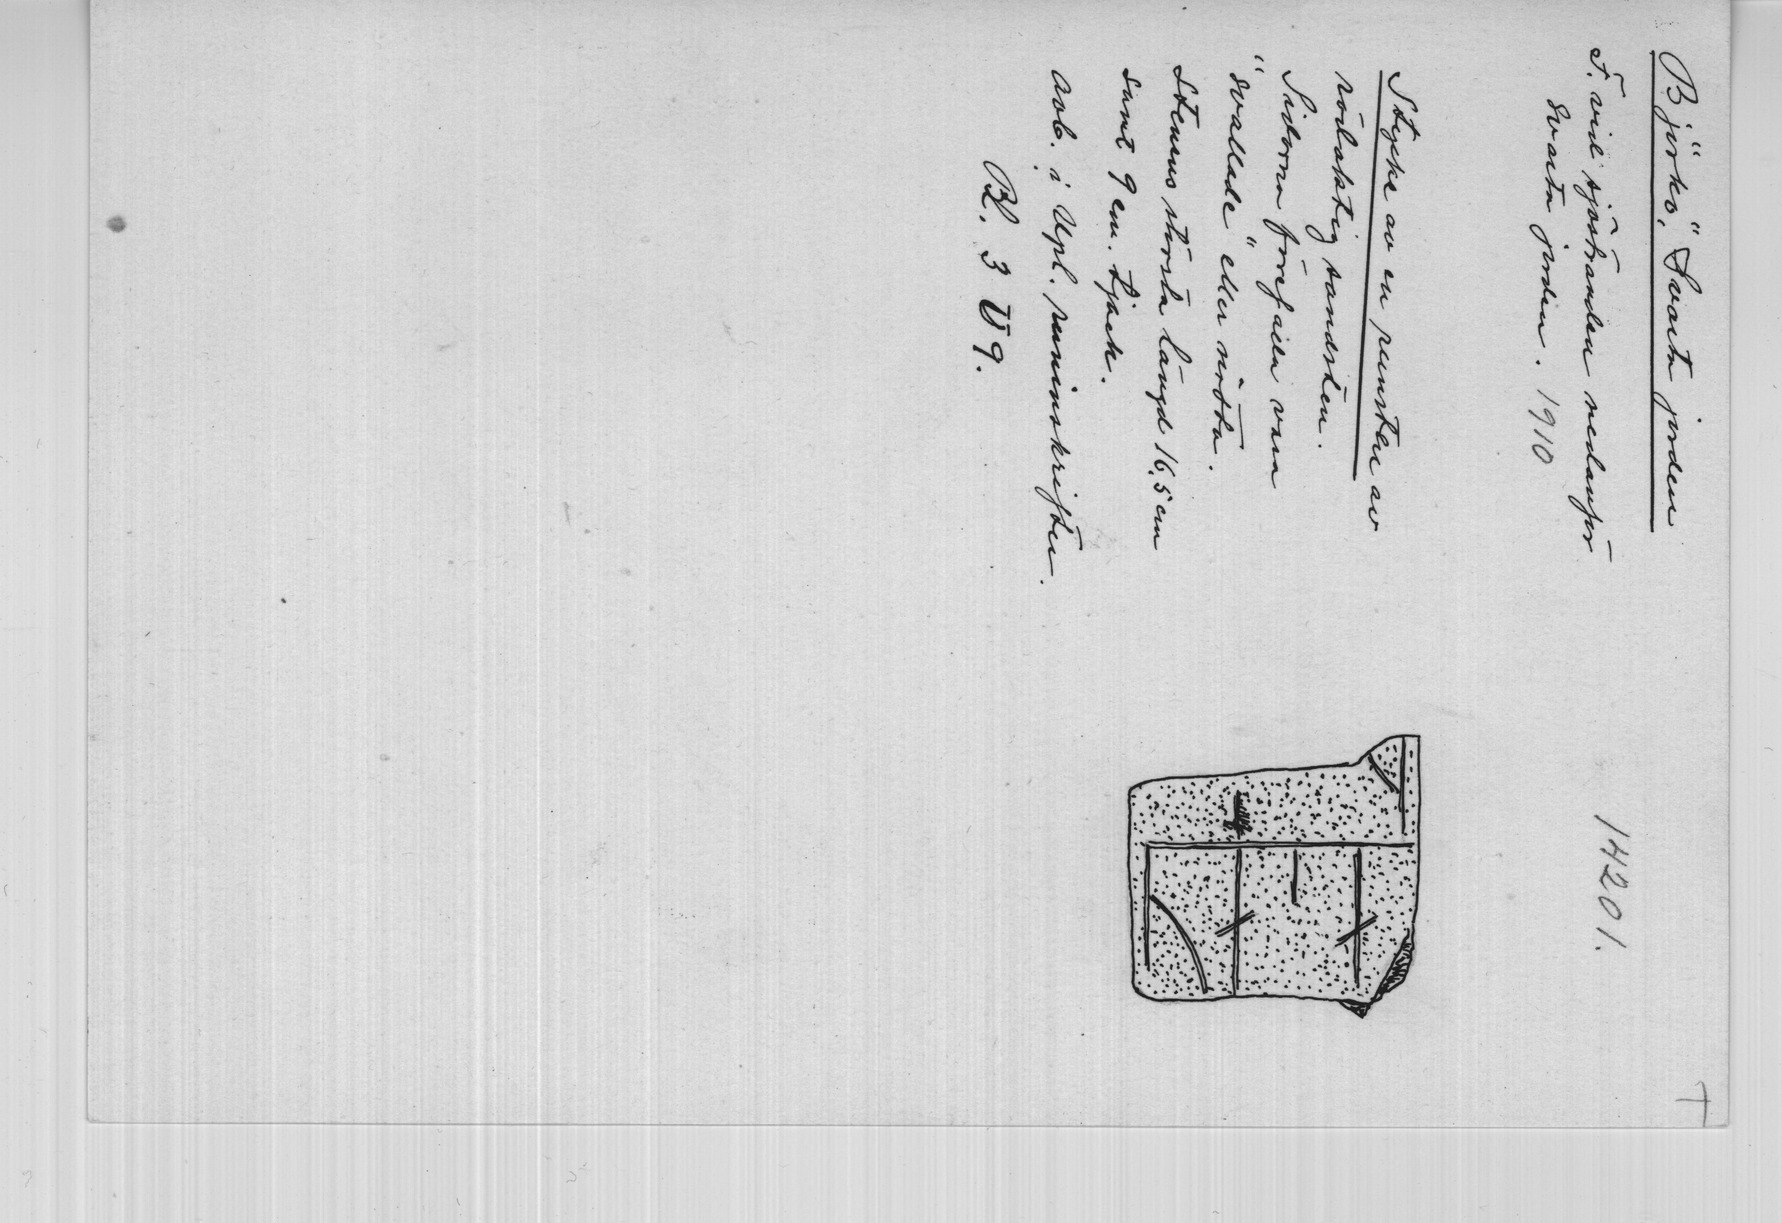 Björkö, "Svarta jorden
14201.
F. vid sjöstranden nedanför
Svarta jorden. 1910
Stycke av en runsten av
rödaktig sandsten.
Sidorna förefaller vara
"svallade" eller nötta.
Stenens största längd 16,5 cm
samt 9 cm. tjock.
avb. i Upl. runinskrifter.
Bl. 3 U 9.